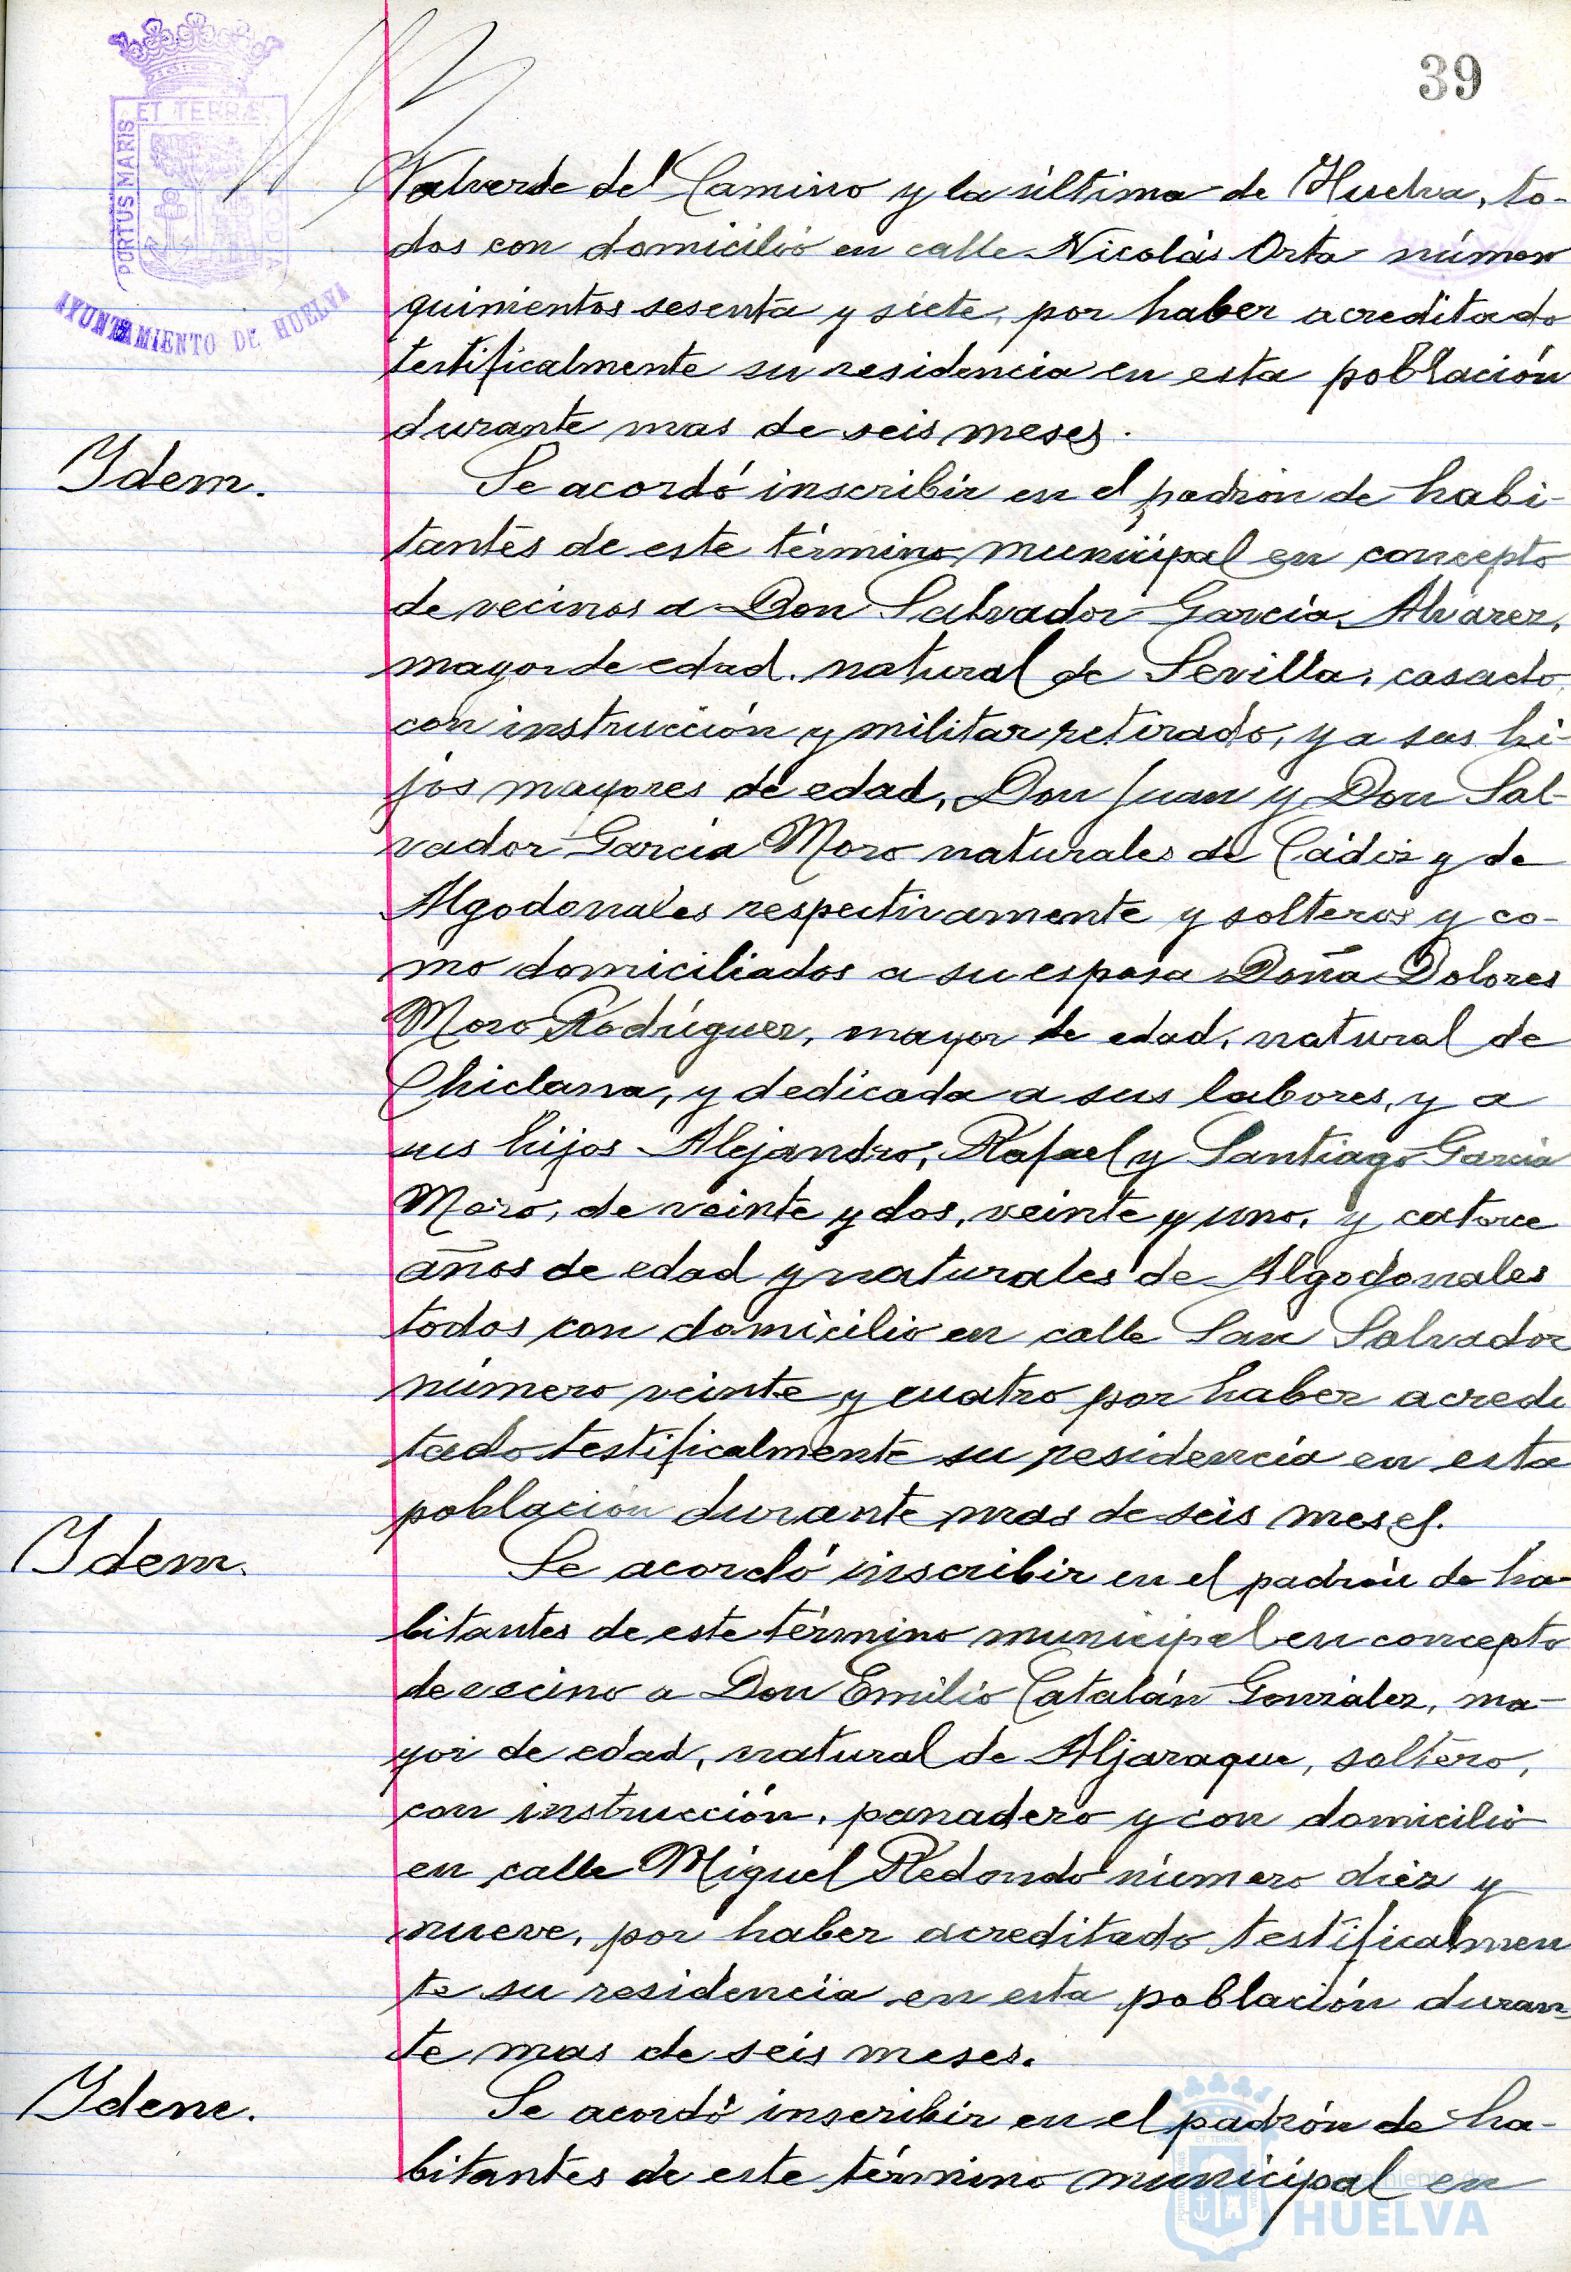 39
ET TERRÆ
PORTUS MARIS
AYUNTAMIENTO DE HUELVA
Valverde del Camino y la última de Huelva, to-
dos con domicilio en calle Nicolás Orta número
quinientos sesenta y siete, por haber acreditado
testificalmente su residencia en esta población
durante mas de seis meses.
Idem.
Se acordó inscribir en el padrón de habi-
tantes de este término municipal en concepto
de vecinos a Don Salvador García Alvarez,
mayor de edad, natural de Sevilla, casado,
con instrucción y militar retirado, y a sus hi-
jos mayores de edad, Don Juan y Don Sal-
vador García Moro naturales de Cádiz y de
Algodonales respectivamente y solteros y co-
mo domiciliados a su esposa Doña Dolores
Moro Rodríguez, mayor de edad, natural de
Chiclana, y dedicada a sus labores, y a
sus hijos Alejandro, Rafael y Santiago García
Moro, de veinte y dos, veinte y uno, y catorce
años de edad y naturales de Algodonales
todos con domicilio en calle San Salvador
número veinte y cuatro por haber acredi
tado testificalmente su residencia en esta
población durante mas de seis meses.
Idem.
Se acordó inscribir en el padrón de ha-
bitantes de este término municipal en concepto
de vecino a Don Emilio Catalán González, ma-
yor de edad, natural de Aljaraque, soltero,
con instrucción, panadero y con domicilio
en calle Miguel Redondo número diez y
nueve, por haber acreditado testificalmen
te su residencia en esta población duran
te mas de seis meses.
Idem.
Se acordó inscribir en el padrón de ha-
bitantes de este término municipal en
Ayuntamiento de
HUELVA